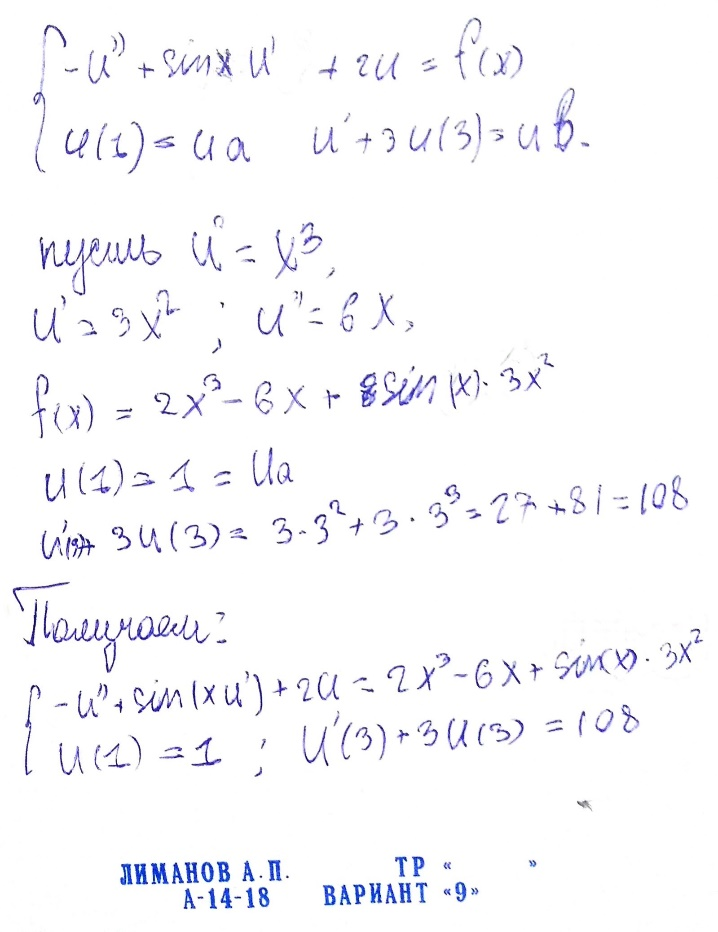 -u'' + sinx u' + 2u = f(x)
u(1) = ua u' + 3u(3) = uв.
пусть u = x³,
u' = 3x² ; u'' = 6x,
f(x) = 2x³ - 6x + sin(x)·3x²
u(1) = 1 = ua
u'(3)+ 3u(3) = 3·3² + 3·3³ = 27 + 81 = 108
Получаем:
-u'' + sin(xu') + 2u = 2x³ - 6x + sin(x)·3x²
u(1) = 1 ; u'(3) + 3u(3) = 108
ЛИМАНОВ А.П. ТР « »
А-14-18 ВАРИАНТ «9»